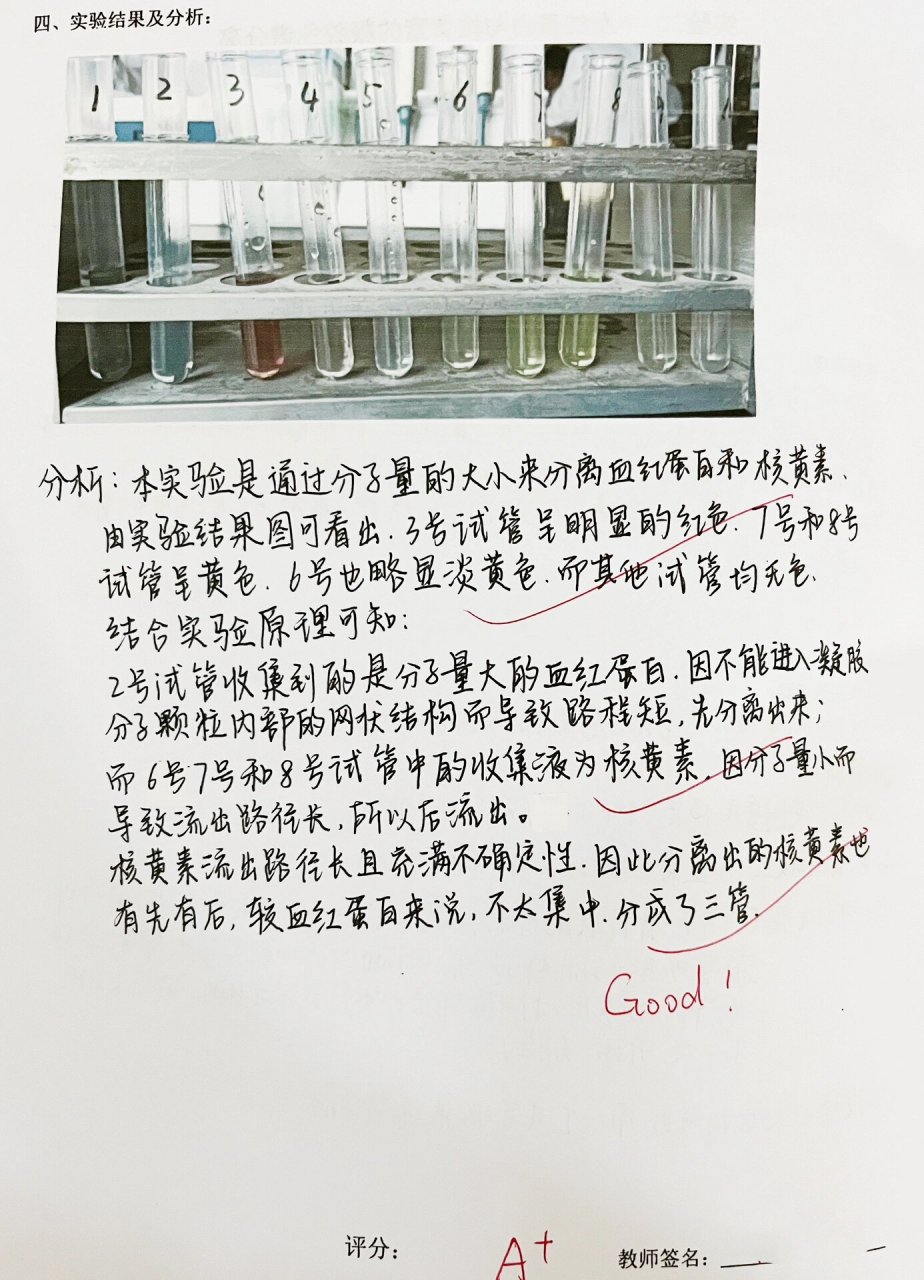 四、实验结果及分析:
1 2 3 4 5 6 7 8 9
分析:本实验是通过分子量的大小来分离血红蛋白和核黄素.
由实验结果图可看出.3号试管呈明显的红色.7号和8号
试管呈黄色.6号也略显淡黄色.而其他试管均无色.
结合实验原理可知:
2号试管收集到的是分子量大的血红蛋白.因不能进入凝胶
分子颗粒内部的网状结构而导致路程短,先分离出来;
而6号7号和8号试管中的收集液为核黄素.因分子量小而
导致流出路径长,所以后流出。
核黄素流出路径长且充满不确定性.因此分离出的核黄素也
有先有后,较血红蛋白来说,不太集中.分成了三管.
Good!
评分: A+ 教师签名: